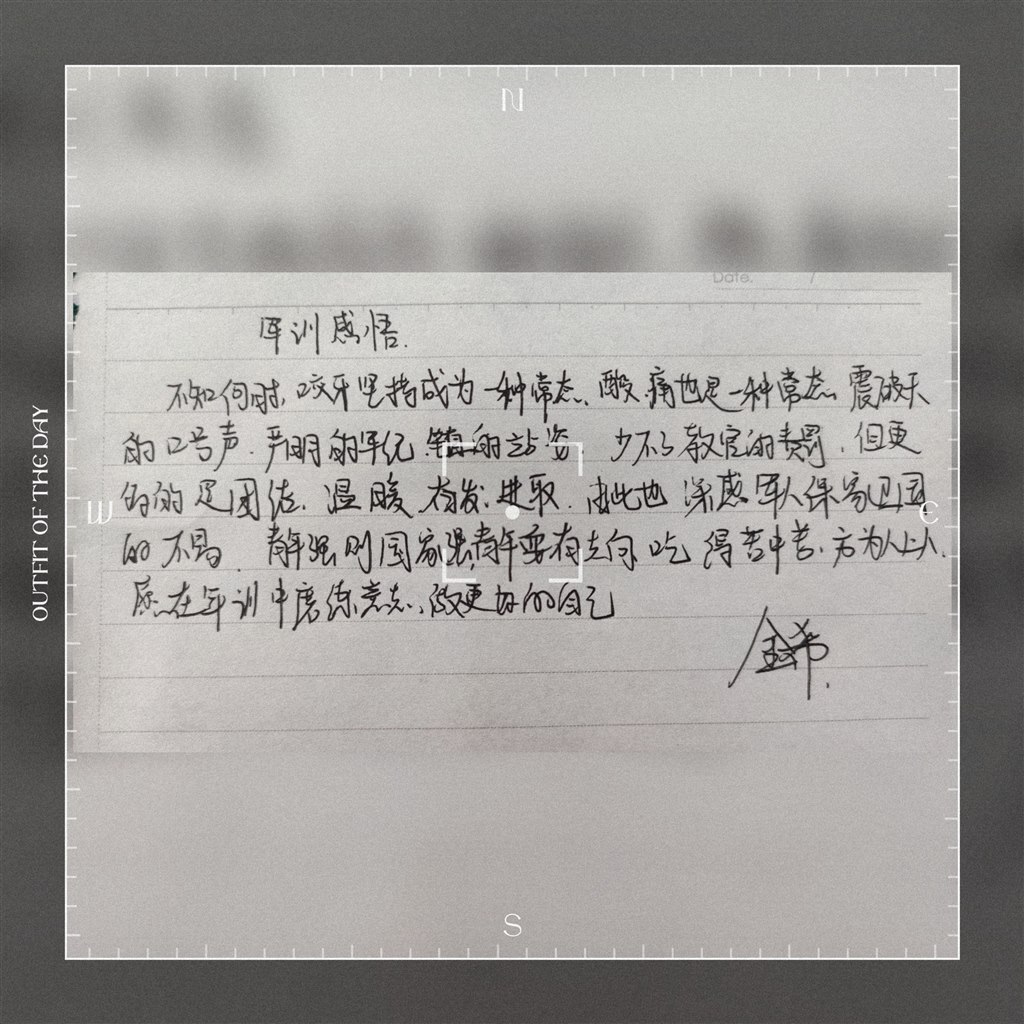 N
Date. /
军训感悟.
不知何时,咬牙坚持成为一种常态、酸、痛也是一种常态 震破天
的口号声.严明的军纪 的站姿.少不了教官的责罚,但更
的的是团结、温暖、奋发、进取.由此也深感军人保家卫国
的不易.青年强则国家强,青年要有志向 吃得苦中苦、方为人上人.
愿在军训中磨练意志、做更好的自己
W
E
OUTFIT OF THE DAY
S